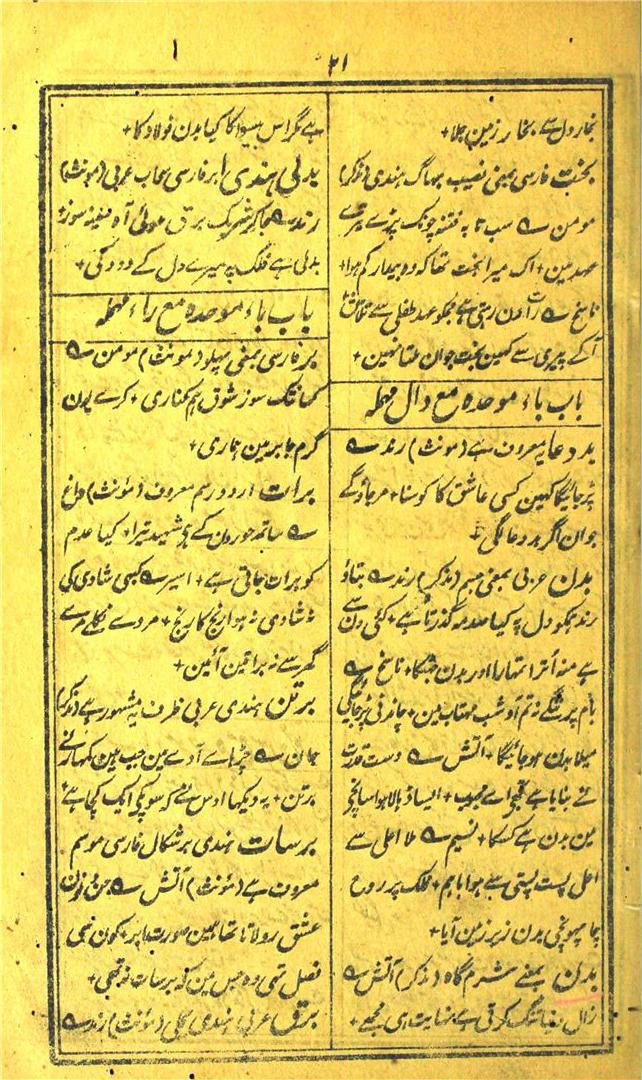 ۲۱
بخار دل سے بخار زمین چلا+
بخت فارسی بمعنی نصیب بھاگ ہندی (مذکر)
مومن سے سب تابہ فتنہ چونک پڑے تیرے
عہد مین+ اک میرا بخت تھا کہ وہ بیدار کم ہوا+
ناسخ سے رات دن رہتی ہے مجکو عہد طفلی سے
آگے پیری سے کہین بخت جوان ملتا نہین+
باب باء موحدہ مع دال مہملہ
بد دعا یہ معروف ہے (مونث) رند سے
پڑ جائیگا کہین کسی عاشق کا کوسنا+ مر جاؤگے
جوان اگر بد دعا لگی+
بدن عربی بمعنی جسم (مذکر) رند سے بتاؤ
رند مجکو دل پہ کیا صدمہ گذرتا ہے+ کئی دن سے
ہے منہ اترا تمہارا اور بدن + ناسخ سے
بام پر ننگے نہ تم آؤ شب مہتاب مین+ چاندنی پڑ جائیگی
میلا بدن ہو جائیگا+ آتش سے دست قدرت
نے بنایا ہے تجھے اے محبوب+ ایسا ڈھالا ہوا سانچے
مین بدن ہے کسکا+ نسیم سے اعلی سے
اعلی پست پستی سے ہوا باہم+ فلک پر روح
جا پہونچی بدن زیر زمین آیا+
بدن بمعنے شرم گاہ (مذکر) آتش سے
زال دنیا تنگ کرتی ہے نہایت ہی مجھے+
ہے مگر اس بیسوا کا کیا بدن فولاد کا+
بدلی ہندی ابر فارسی سحاب عربی (مونث)
رند سے جاکر شریک برق ہوئی آہ سوز+
بدلی ہے فلک پہ میرے دل کے دود کی+
باب باء موحدہ مع راء مہملہ
بر فارسی بمعنی پہلو (مونث) مومن سے
کہانتک سوز شوق ہم کناری+ کرے یون
گرم جا بر مین ہماری+
برات اردو رسم معروف (مؤنث) داغ
سے ساتھ حورون کے ہے شہید تیرا+ کیا عدم
کو برات جاتی ہے+ اسیر سے کیسی شادی کی
نہ شادی نہ ہوا رنج کا رنج+ مردے نکلے مرے
گھر سے نہ براتین آئین+
برتن ہندی عربی ظرف یہ مشہور ہے (مذکر)
جان سے چڑہاے آوے مین جب مین کمہار نے
برتن+ یہ دیکہا اوس نے کہ سو پکے ایک کچا ہے
برسات ہندی برشکال فارسی موسم
معروف ہے (مؤنث) آتش سے جن دنون
عشق رولاتا تھا ہمین صورت ابر+ کون سی
فصل تھی وہ جس مین کہ برسات نہ تھی+
برق عربی ہندی بجلی (مؤنث) رند سے